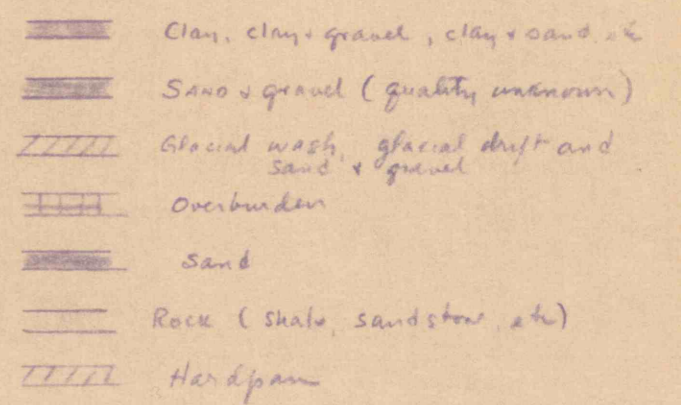 Clay, clay & gravel, clay & sand etc
Sand & gravel (quality unknown)
Glacial wash, glacial drift and
sand & gravel
Overburden
Sand
Rock (shale, sandstone, etc)
Hardpan